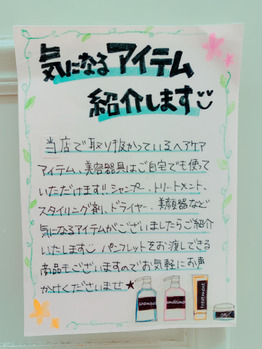 気になるアイテム
紹介します
当店で取り扱かっているヘアケア
アイテム、美容器具はご自宅でも使って
いただけます!!シャンプー、トリートメント、
スタイリング剤、ドライヤー、美顔器など
気になるアイテムがございましたらご紹介
いたします パンフレットをお渡しできる
商品もございますのでお気軽にお声
かけくださいませ★
shampoo
treatment